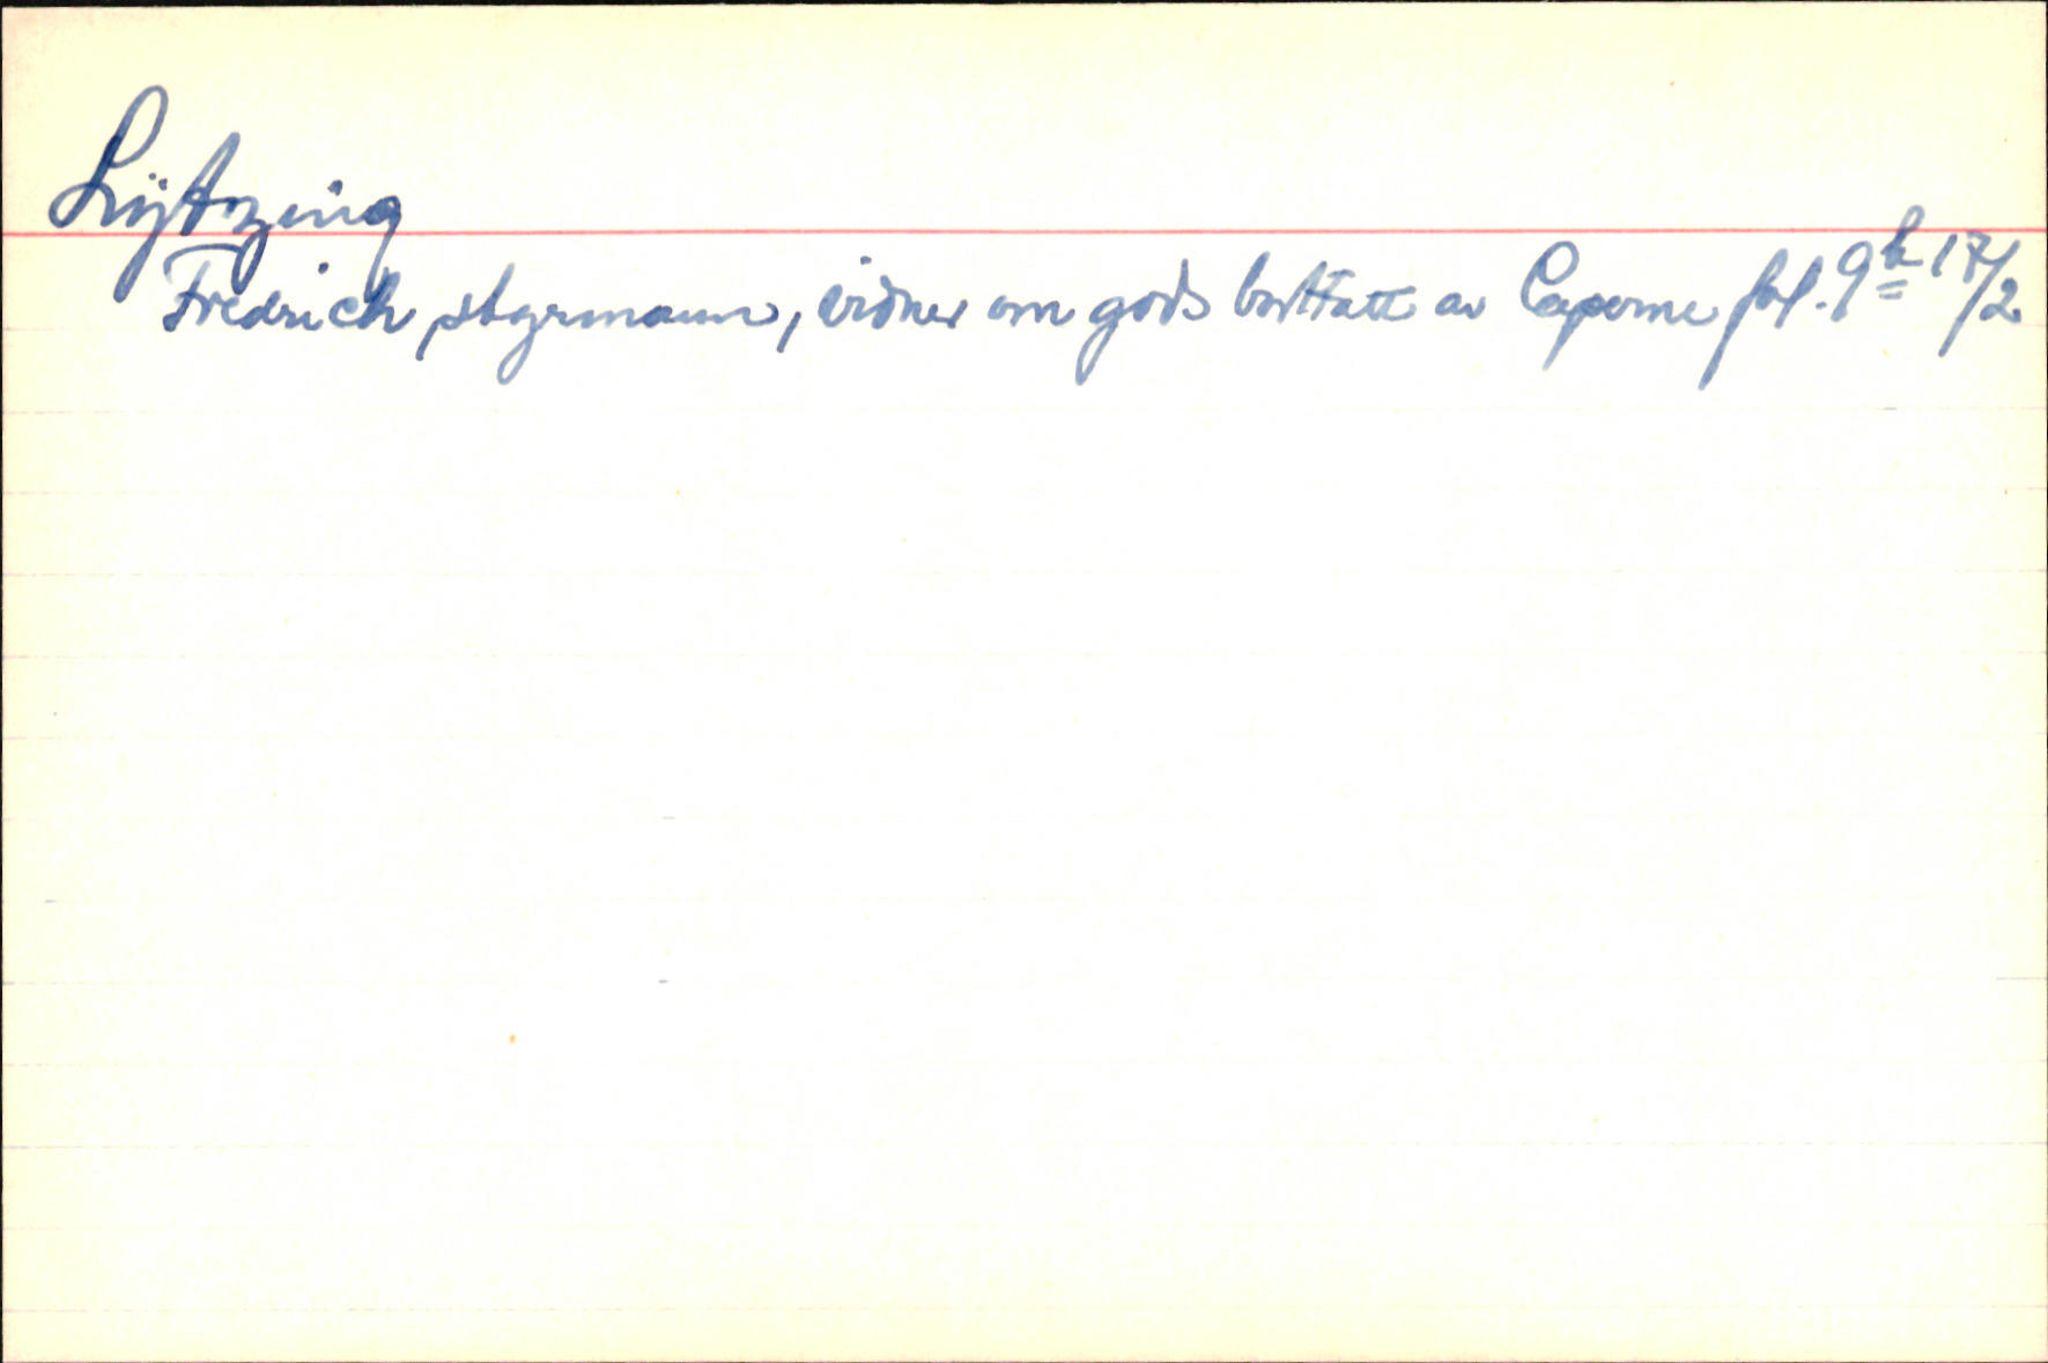 Lÿtzing
Fredrich, styrmann, vidner om gods borttatt av Caperne fol. 9b 17/2